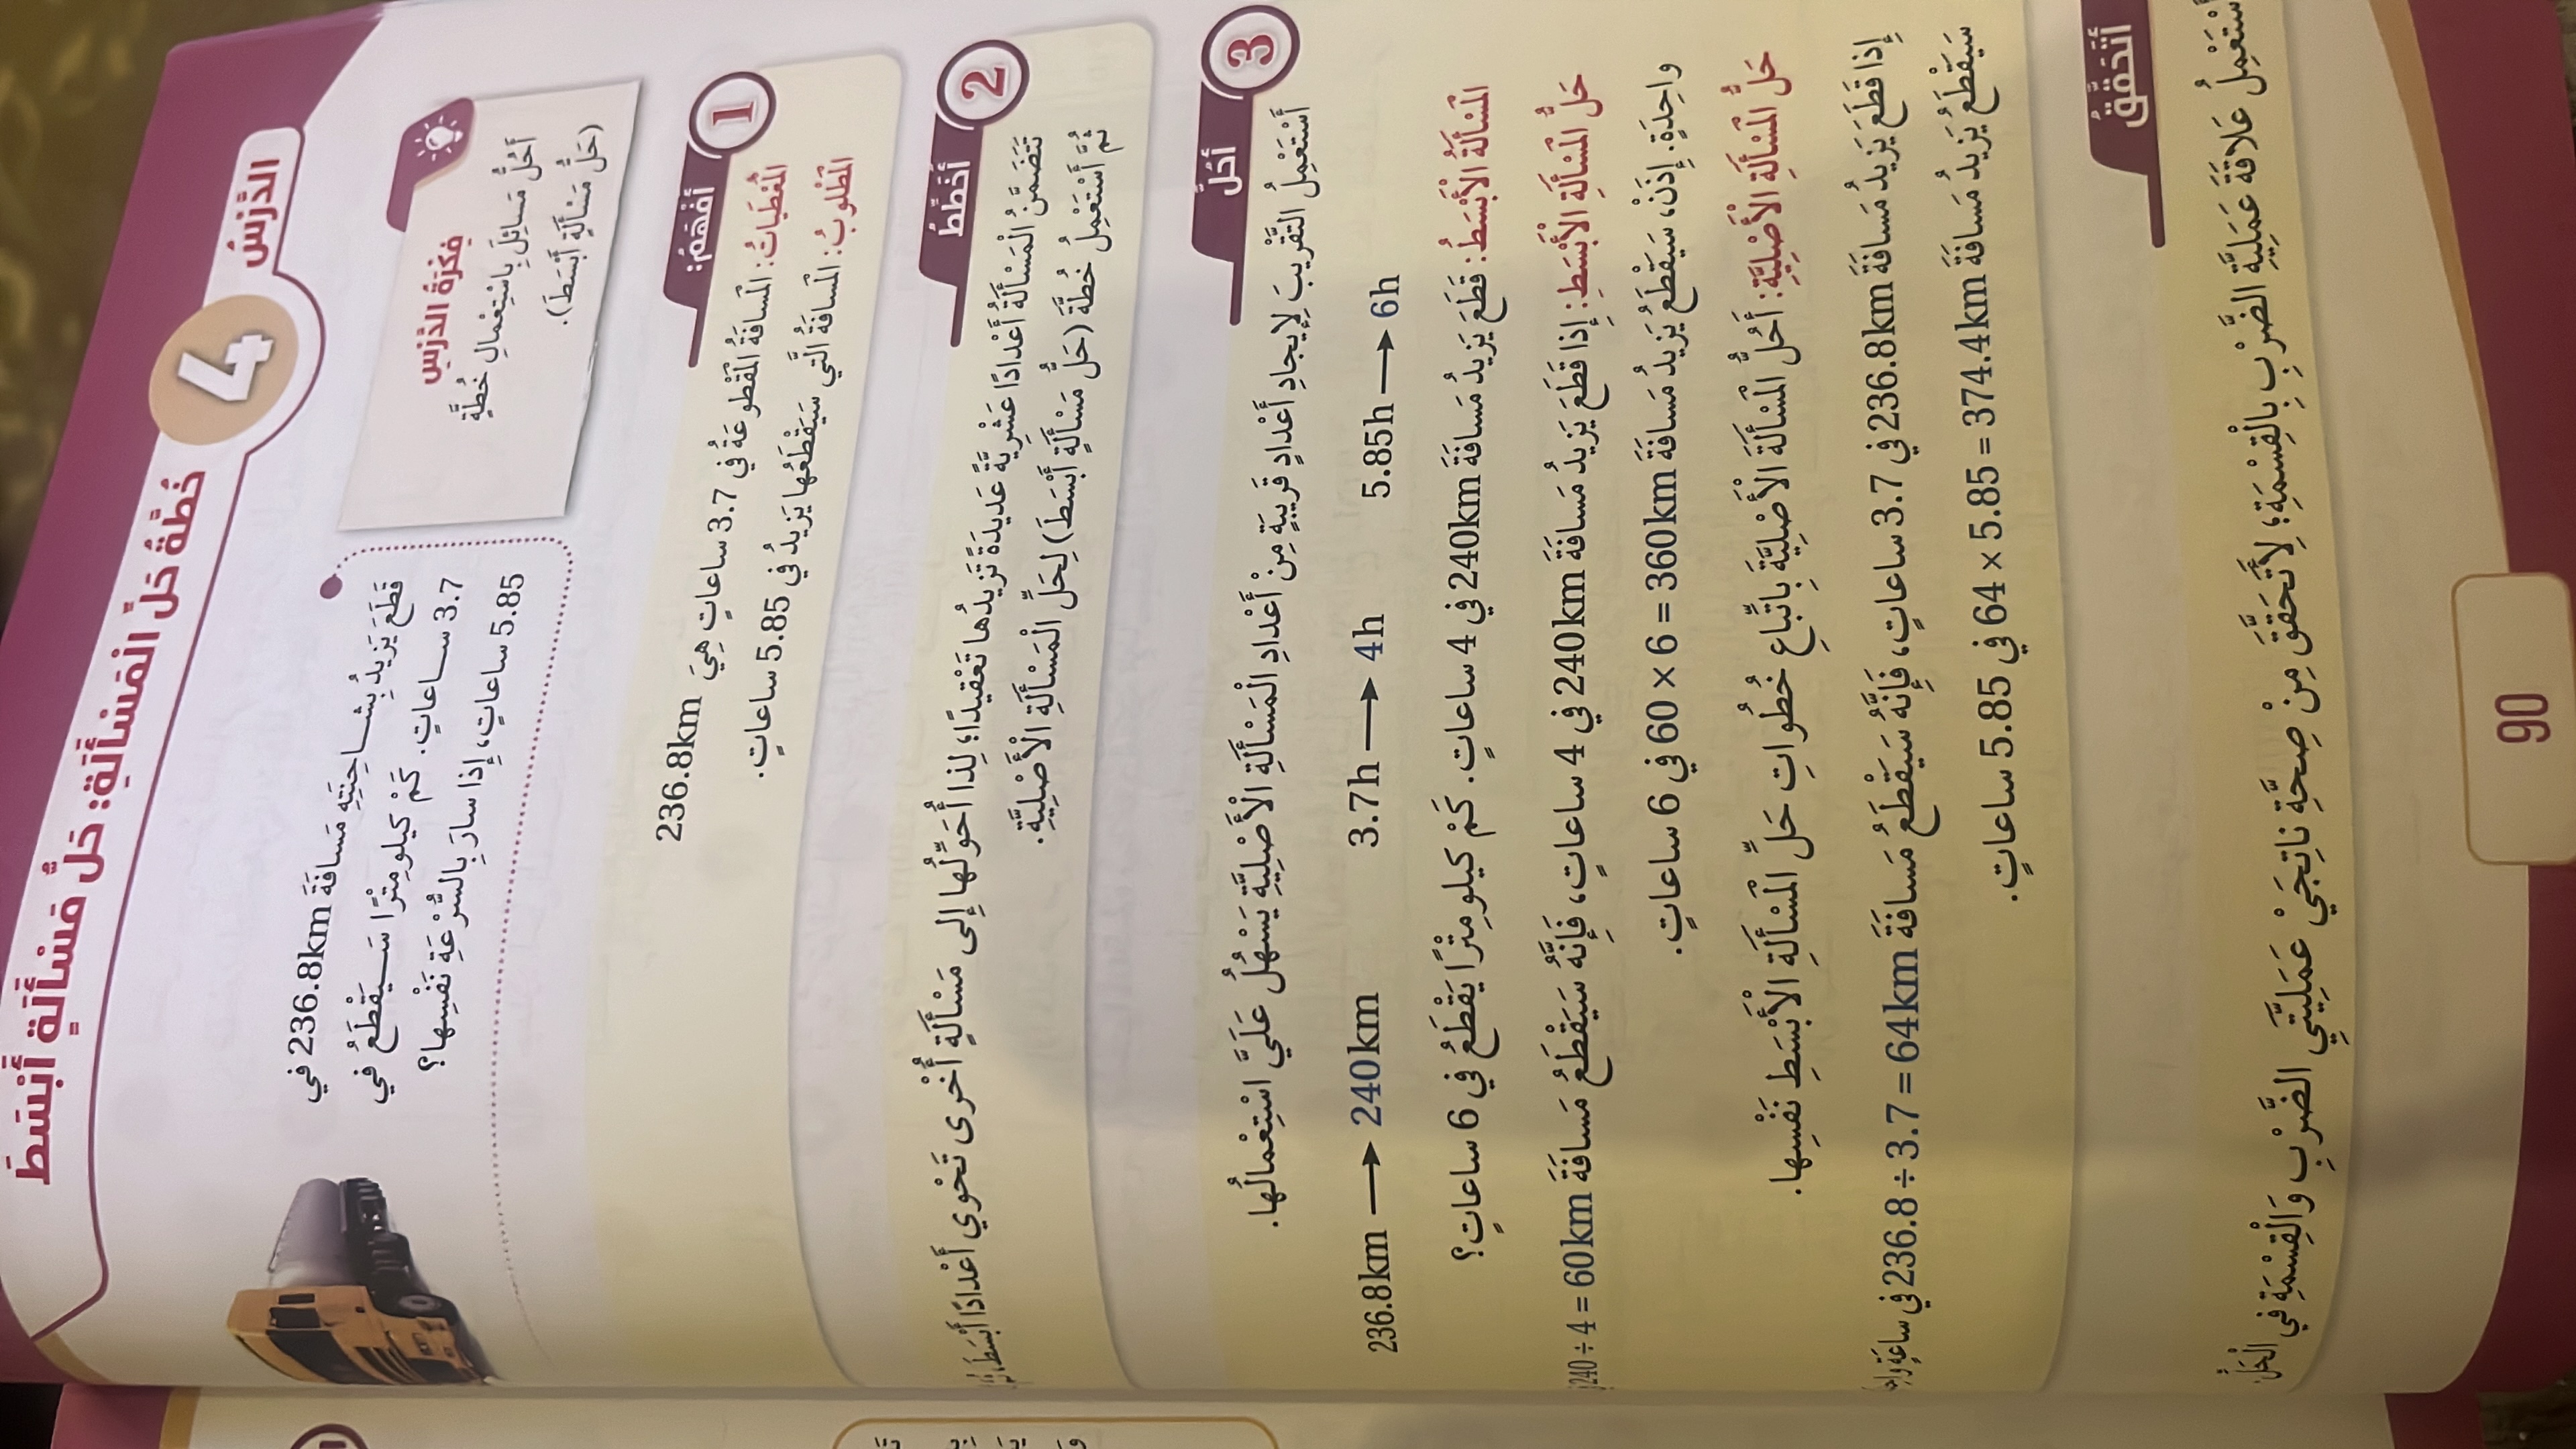 الدَّرْسُ 4 خُطَّةُ حَلِّ الْمَسْأَلَةِ: حَلُّ مَسْأَلَةٍ أَبْسَطَ
فِكْرَةُ الدَّرْسِ
أَحُلُّ مَسائِلَ بِاسْتِعْمالِ خُطَّةِ
(حَلُّ مَسْأَلَةٍ أَبْسَطَ).
قَطَعَ يَزيدُ بِشاحِنَتِهِ مَسافَةَ 236.8km في
3.7 ساعاتٍ. كَمْ كيلومِتْرًا سَيَقْطَعُ في
5.85 ساعاتٍ، إِذا سارَ بِالسُّرْعَةِ نَفْسِها؟
أَفْهَمُ: 1
الْمُعْطَياتُ: الْمَسافَةُ الْمَقْطوعَةُ في 3.7 ساعاتٍ هِيَ 236.8km
الْمَطْلوبُ: الْمَسافَةُ الَّتي سَيَقْطَعُها يَزيدُ في 5.85 ساعاتٍ.
أُخَطِّطُ 2
تَتَضَمَّنُ الْمَسْأَلَةُ أَعْدادًا عَشْرِيَّةً عَديدَةً تَزيدُها تَعْقيدًا؛ لِذا أُحَوِّلُها إِلى مَسْأَلَةٍ أُخْرى تَحْوي أَعْدادًا أَبْسَطَ،
ثُمَّ أَسْتَعْمِلُ خُطَّةَ (حَلُّ مَسْأَلَةٍ أَبْسَطَ) لِحَلِّ الْمَسْأَلَةِ الْأَصْلِيَّةِ.
أَحُلُّ 3
أَسْتَعْمِلُ التَّقْريبَ لِإيجادِ أَعْدادٍ قَريبَةٍ مِنْ أَعْدادِ الْمَسْأَلَةِ الْأَصْلِيَّةِ يَسْهُلُ عَلَيَّ اسْتِعْمالُها.
236.8km → 240km 3.7h → 4h 5.85h → 6h
الْمَسْأَلَةُ الْأَبْسَطُ: قَطَعَ يَزيدُ مَسافَةَ 240km في 4 ساعاتٍ. كَمْ كيلومِتْرًا يَقْطَعُ في 6 ساعاتٍ؟
حَلُّ الْمَسْأَلَةِ الْأَبْسَطِ: إِذا قَطَعَ يَزيدُ مَسافَةَ 240km في 4 ساعاتٍ، فَإِنَّهُ سَيَقْطَعُ مَسافَةَ 240 ÷ 4 = 60km
واحِدَةٍ. إِذَنْ، سَيَقْطَعُ يَزيدُ مَسافَةَ 60 × 6 = 360km في 6 ساعاتٍ.
حَلُّ الْمَسْأَلَةِ الْأَصْلِيَّةِ: أَحُلُّ الْمَسْأَلَةَ الْأَصْلِيَّةَ بِاتِّباعِ خُطُواتِ حَلِّ الْمَسْأَلَةِ الْأَبْسَطِ نَفْسِها.
إِذا قَطَعَ يَزيدُ مَسافَةَ 236.8km في 3.7 ساعاتٍ، فَإِنَّهُ سَيَقْطَعُ مَسافَةَ 236.8 ÷ 3.7 = 64km في ساعَةٍ
سَيَقْطَعُ يَزيدُ مَسافَةَ 64 × 5.85 = 374.4km في 5.85 ساعاتٍ.
أَتَحَقَّقُ
أَسْتَعْمِلُ عَلاقَةَ عَمَلِيَّةِ الضَّرْبِ بِالْقِسْمَةِ؛ لِأَتَحَقَّقَ مِنْ صِحَّةِ ناتِجَيْ عَمَلِيَّتَيِ الضَّرْبِ وَالْقِسْمَةِ في الْحَلِّ
90